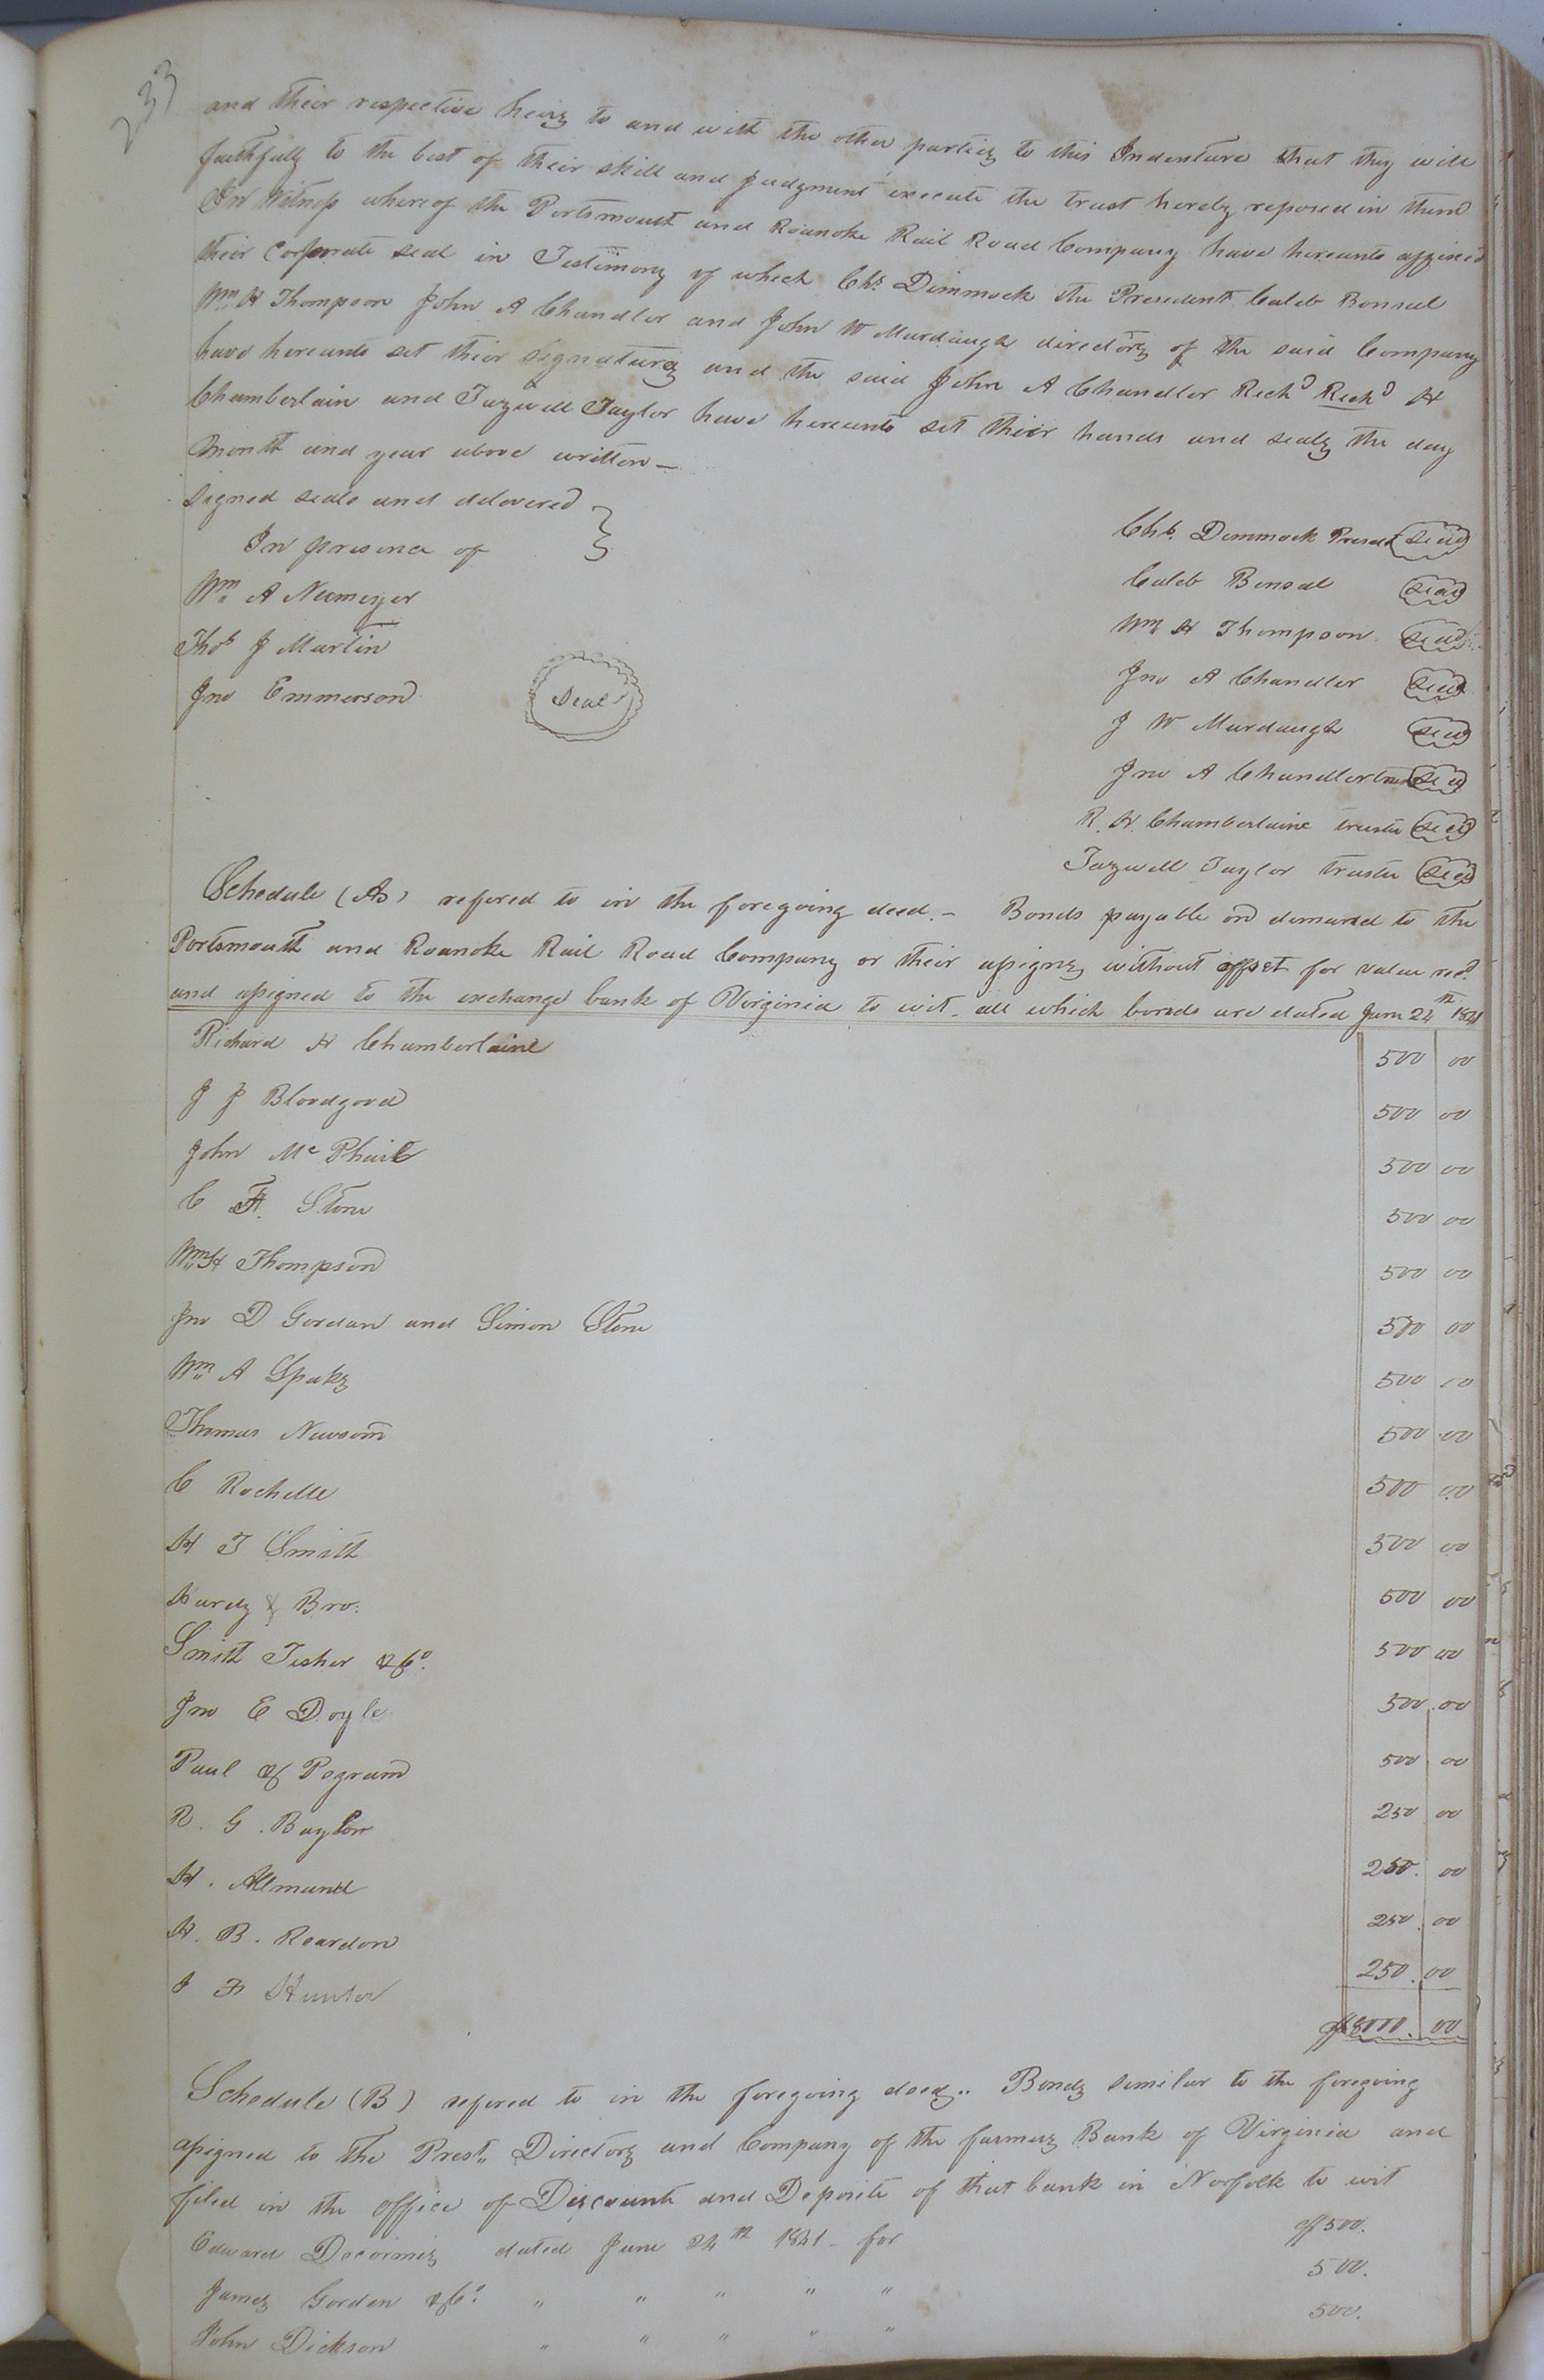 233
and their respective heirs to and with the other parties to this Indenture that they will
faithfully to the best of their skill and judgment execute the trust hereby reposed in them
In Witness whereof the Portsmouth and Roanoke Rail Road Company have hereunto affixed
their corporate seal in Testimony of which Chs. Dimmock the President Caleb Bonsal
Wm H Thompson John A Chandler and John W Murdaugh directors of the said Company
have hereunto set their signatures and the said John A Chandler Richd Richd H
Chamberlain and Tazwell Taylor have hereunto set their hands and seals the day
month and year above written —
Signed seals and delovered
In presence of
Chs. Dimmock Presedt Seal
Wm A Neimeyer
Caleb Bonsal Seal
Thos J Martin
Wm H Thompson Seal
Jno Emmerson
Seal
Jno A Chandler Seal
J W Murdaugh Seal
Jno A Chandler Seal
R. H. Chamberlaine trustee Seal
Tazwell Taylor trustee Seal
Schedule (A) refered to in the foregoing deed. — Bonds payable on demand to the
Portsmouth and Roanoke Rail Road Company or their assigns without offset for value recd.
and assigned to the exchange bank of Virginia to wit. all which bonds are dated June 24th 1841
Richard H Chamberlaine 500 00
J J Bloodgood 500 00
John McPhail 500 00
C F. Stone 500 00
Wm H Thompson 500 00
Jno D Gordan and Simon Stone 500 00
Wm A Spaks 500 00
Thomas Newsom 500 00
C Rochelle 500 00
H T Smith 500 00
Hardy & Bro: 500 00
Smith Tesher & Co. 500 00
Jno E Doyle 500 00
Paul & Pegram 500 00
R. G. Baylor 250 00
H. Allmand 250. 00
H. B. Reardon 250. 00
J F Hunter 250. 00
$8000. 00
Schedule (B) refered to in the foregoing deed.. Bonds similar to the foregoing
assigned to the Prest,, Directors and Company of the farmers Bank of Virginia and
filed in the office of Discount and Deposite of that bank in Norfolk to wit
Edward Decormis dated June 24th 1841 – for $500.
James Gordon & Co. " " " " " 500.
John Dickson " " " " " 500.